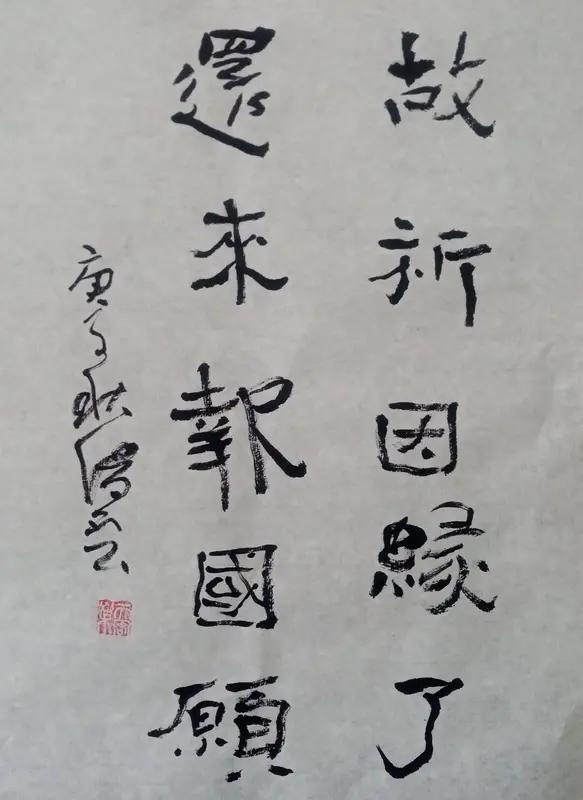 故祈因緣了
還來報國願
庚子秋